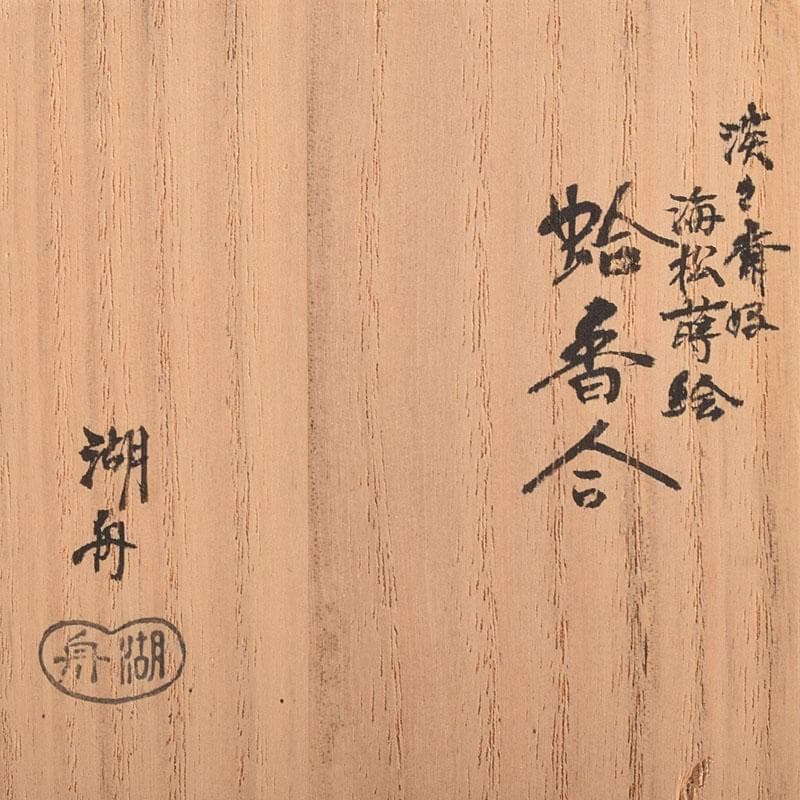 淡々斎好
海松蒔絵
蛤香合
湖舟
湖舟